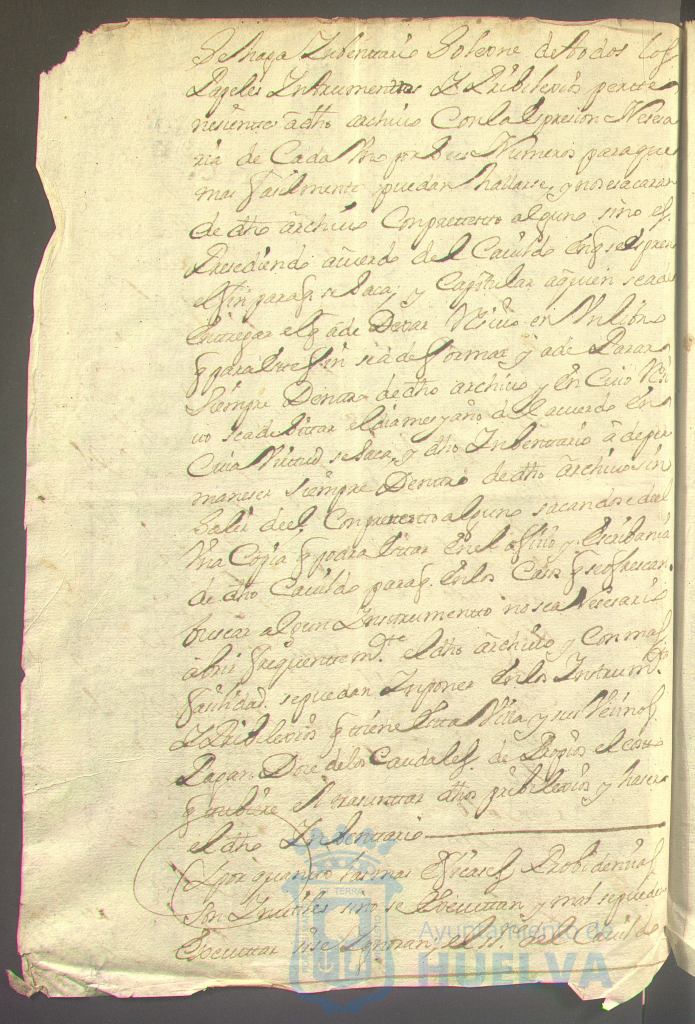 Se haga Inbentario Solemne de todos los
Papeles Instrumentos Y Pribilexios perte
nesientes a dho archivo Con la Espresion Nesesa
ria de Cada Uno por sus Numeros para que
mas fasilmente puedan hallarse, y no se sacaran
de dho archivo Con pretexto alguno sino es
Presediendo acuerdo del Cavildo En q se Esprese
el fin para q se saca, y Capitular a quien se ade
Entregar el q ade Dexar Resivo en Un libro
q para Este fin se a de formar y ade Parar
Siempre Dentro de dho archivo y En Cuio Resi
vo se a de Sitar el dia mes y año del acuerdo En
Cuia Virtud se saca, y dho Inbentario a de per
maneser Siempre Dentro de dho archivo sin
Salir de el Con pretexto alguno sacandose del
Una Copia q podra Estar En el ofisio y Escribania
de dho Cavildo para q En los Casos q se ofrescan
buscar algun Instrumento no sea Nesesario
abrir frequentemte el dho archivo y Con mas
fasilidad se puedan Inponer En los Instrumtos
Y Pribilexios q tiene Esta Villa y sus Vesinos
Pagandose de los Caudales de Propios el costo
q tubiere El trasuntar dhos pribilexios y haser
el dho Inbentario
Y por quanto las mas Eficases Probidensias
Son Inutiles si no se Executan y mal se pueden
Executar si se Ygnoran el ssno del Cavildo
Ayuntamiento de
HUELVA